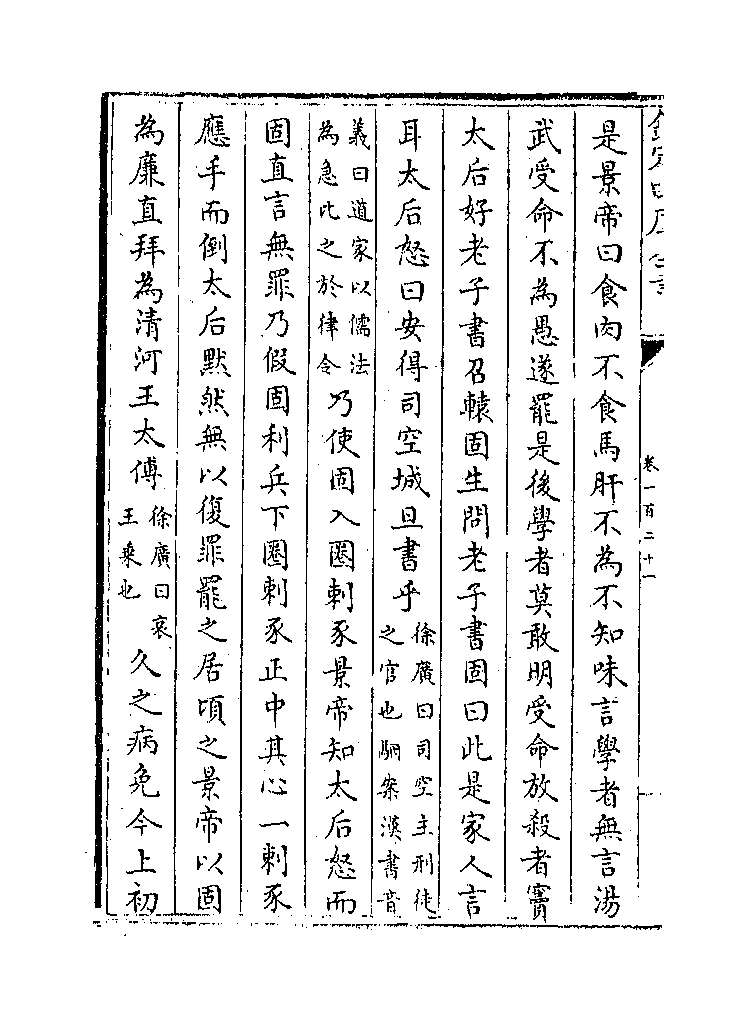 欽定四庫全書
卷一百二十一
是景帝曰食肉不食馬肝不為不知味言學者無言湯
武受命不為愚遂罷是後學者莫敢明受命放殺者竇
太后好老子書召轅固生問老子書固曰此是家人言
耳太后怒曰安得司空城旦書乎徐廣曰司空主刑徒之官也駰案漢書音
義曰道家以儒法為急比之於律令乃使固入圈刺豕景帝知太后怒而
固直言無罪乃假固利兵下圈刺豕正中其心一刺豕
應手而倒太后默然無以復罪罷之居頃之景帝以固
為廉直拜為清河王太傅徐廣曰哀王乘也久之病免今上初